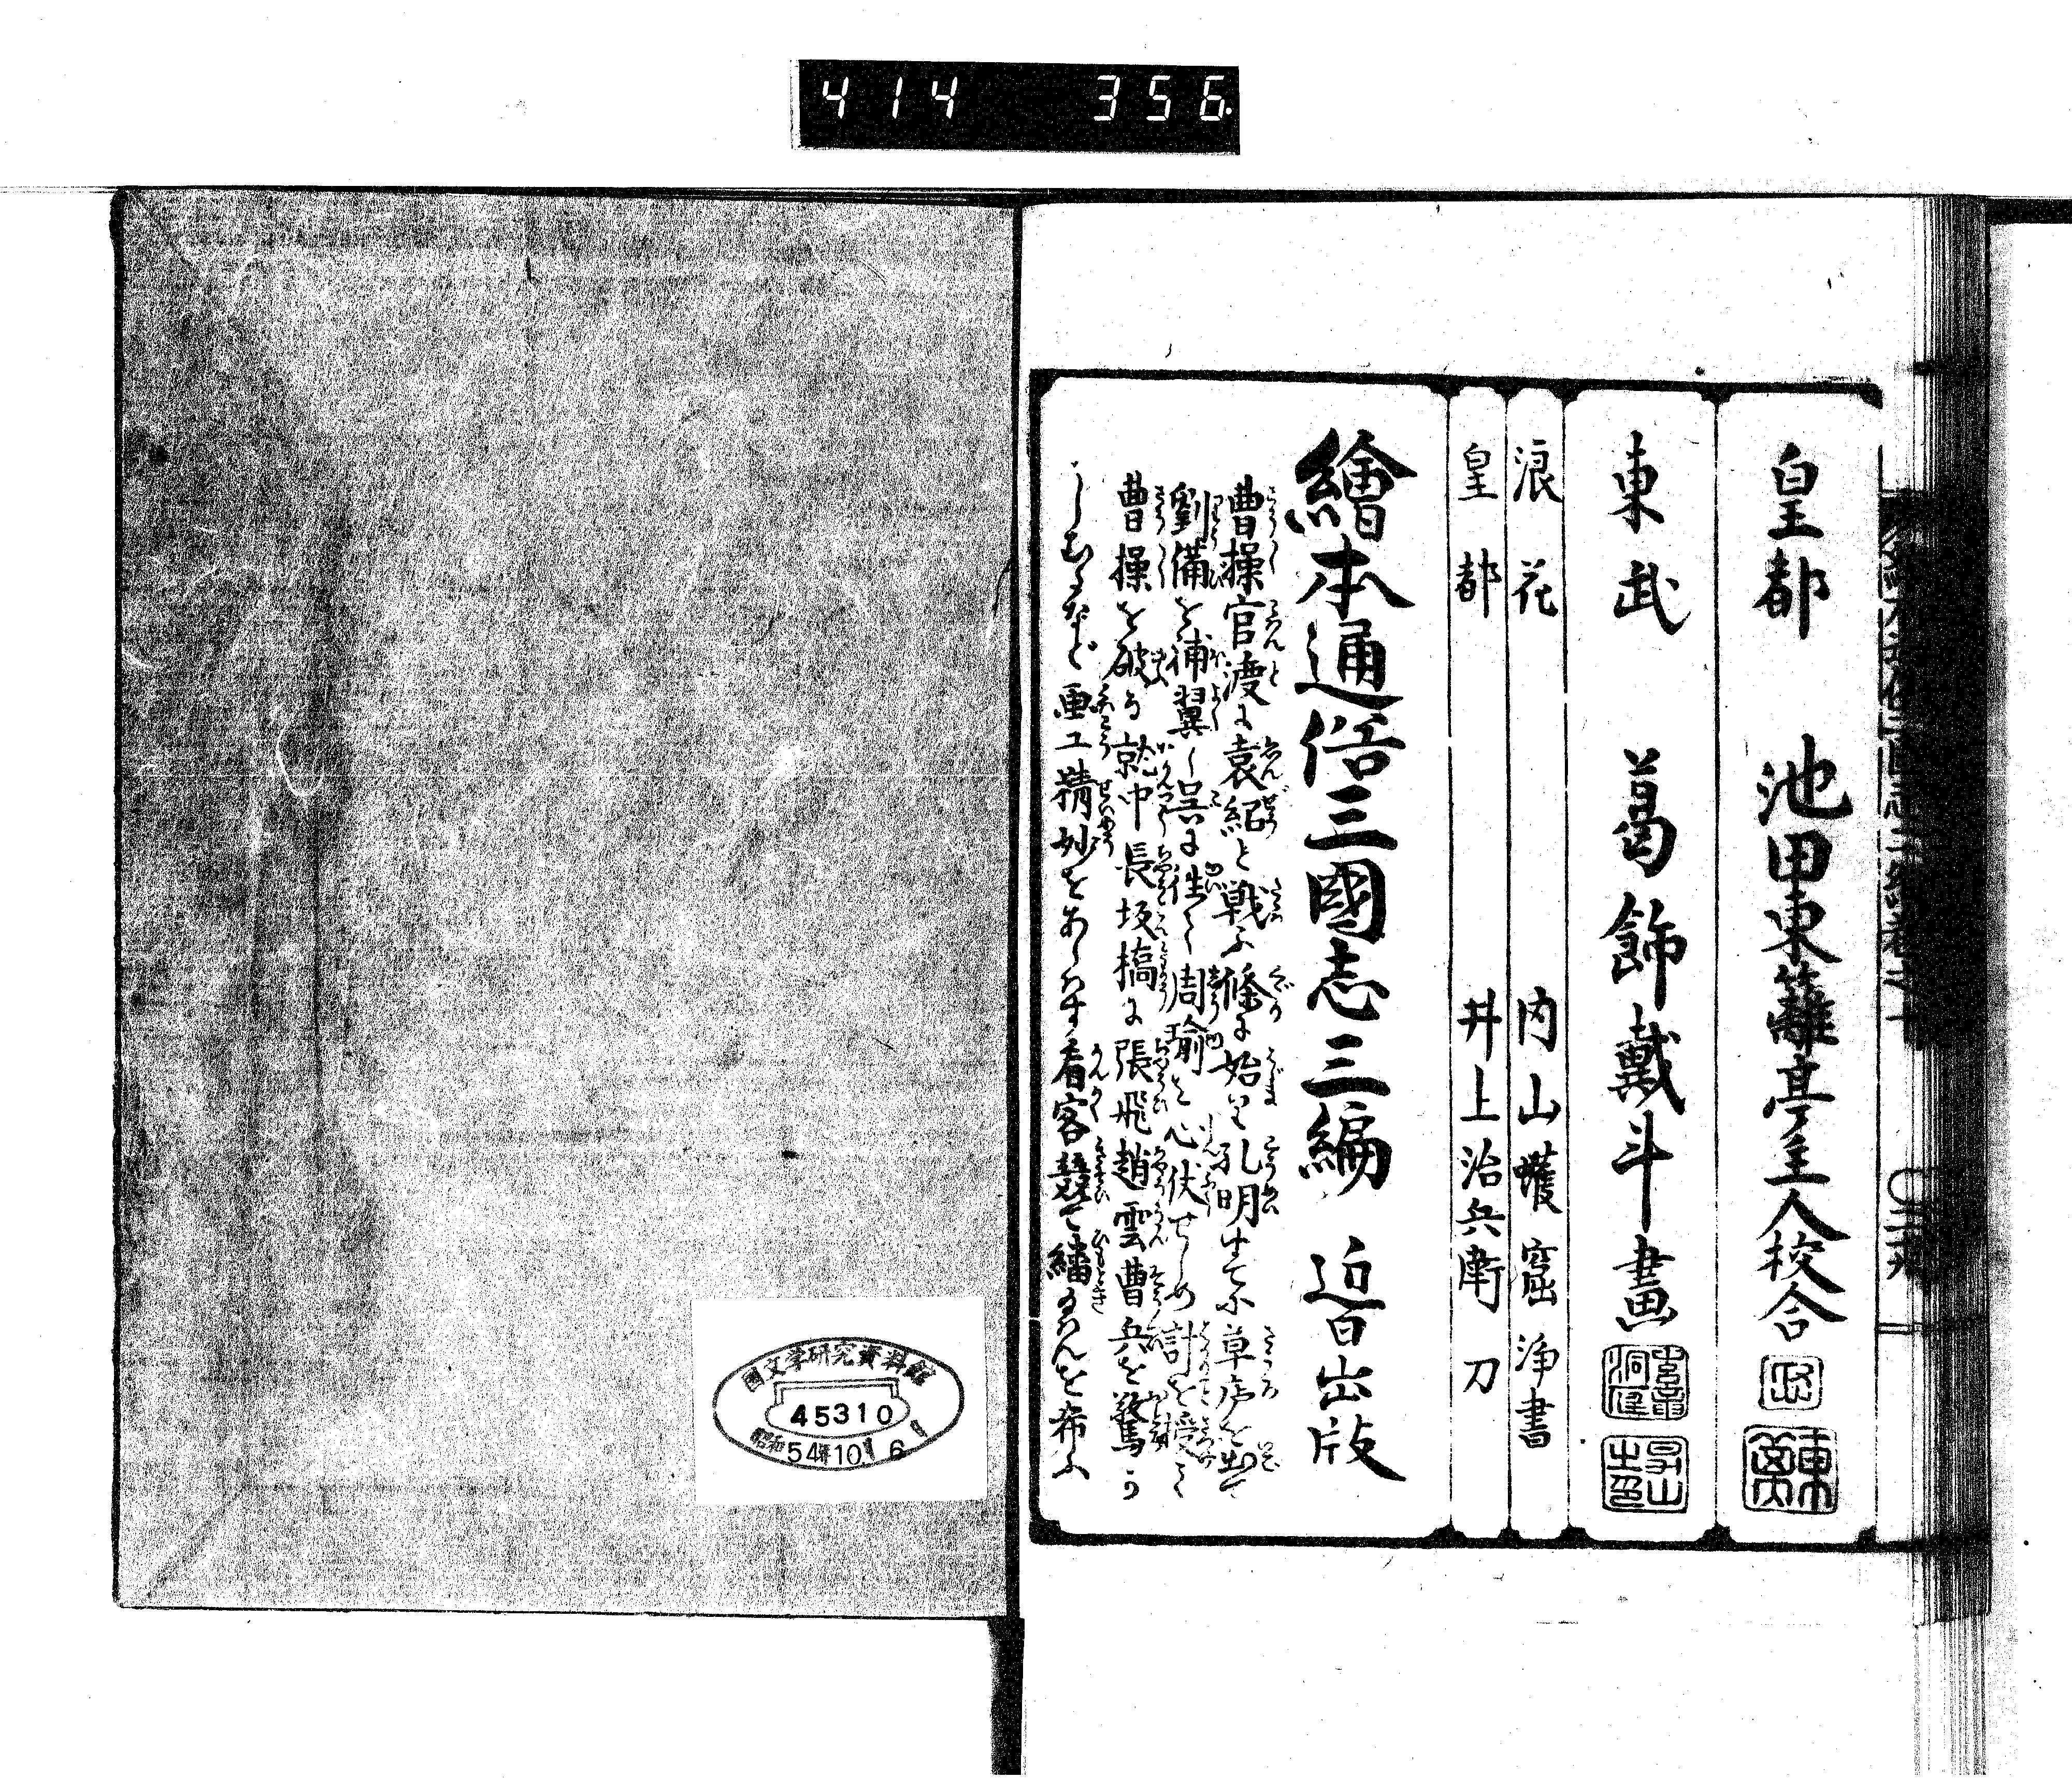 414 356
皇都 池田東籬亭主人挍合
東武 葛飾戴斗畫
浪花 内山蠖窟浄書
皇都 井上治兵衛刀
繪本通俗三國志三編 近日出版
曹操官渡に袁紹と戦ふ條に始り孔明すでに草庐を出て
劉備を補翼し呉に往て周瑜を心伏せしめ計を授て
曹操を破る就中長坂橋に張飛趙雲曹兵を驚か
しむるなど画工精妙をあらはす看客競て繙るんを希ふ
國文学研究資料館
45310
昭和54年10月6日